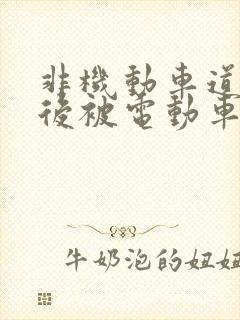 非機動車道
後被電動車
牛奶泡的妞妞